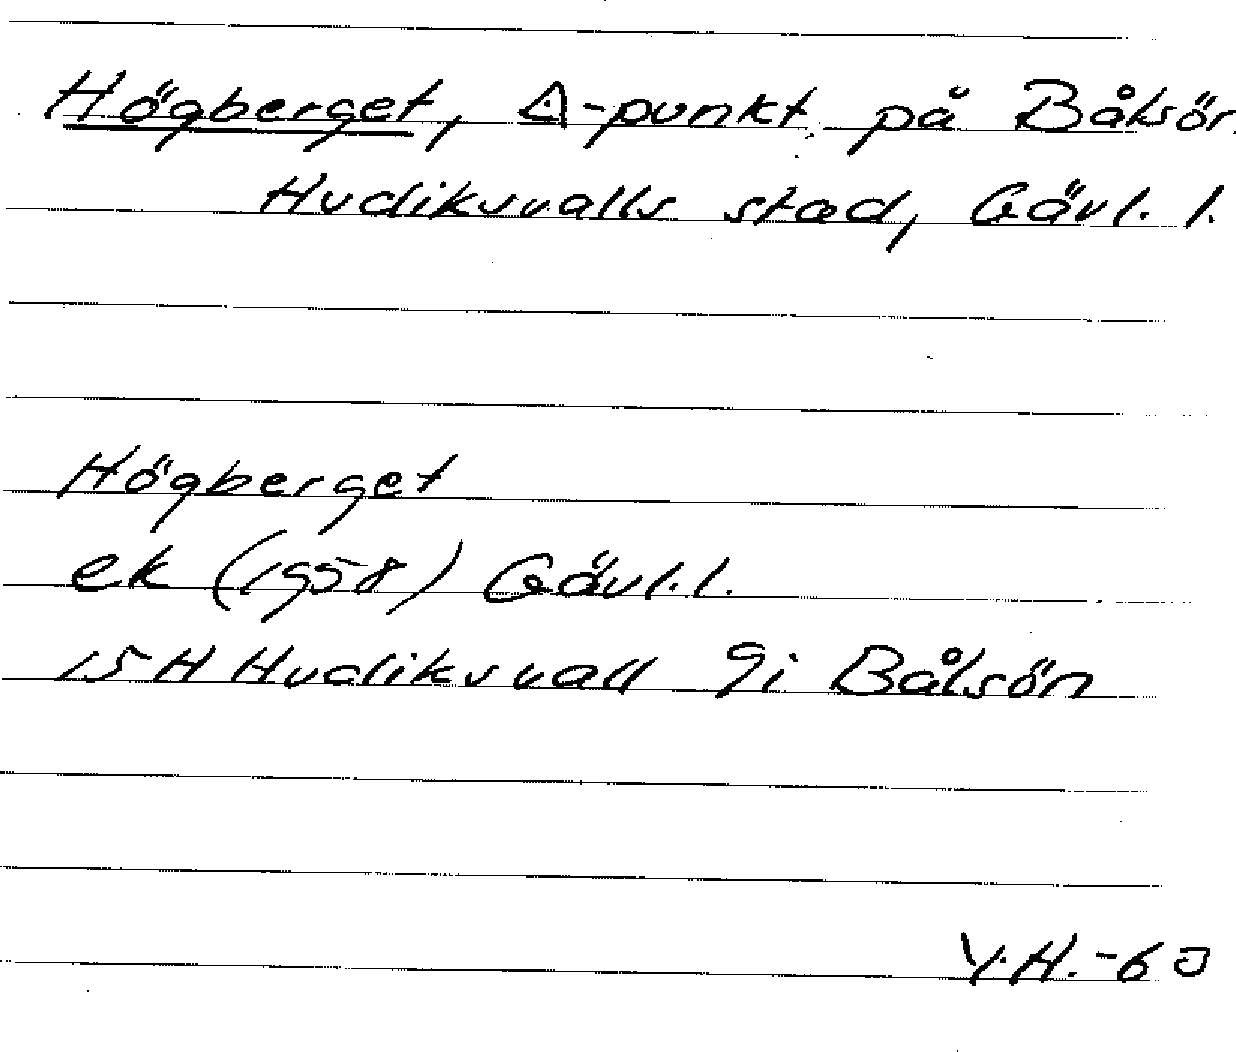 Högberget, △-punkt på Bålsön
Hudiksvalls stad, Gävl. l.
Högberget
ek (1958) Gävl. l.
15 H Hudiksvall 9i Bålsön
Y.H.-60